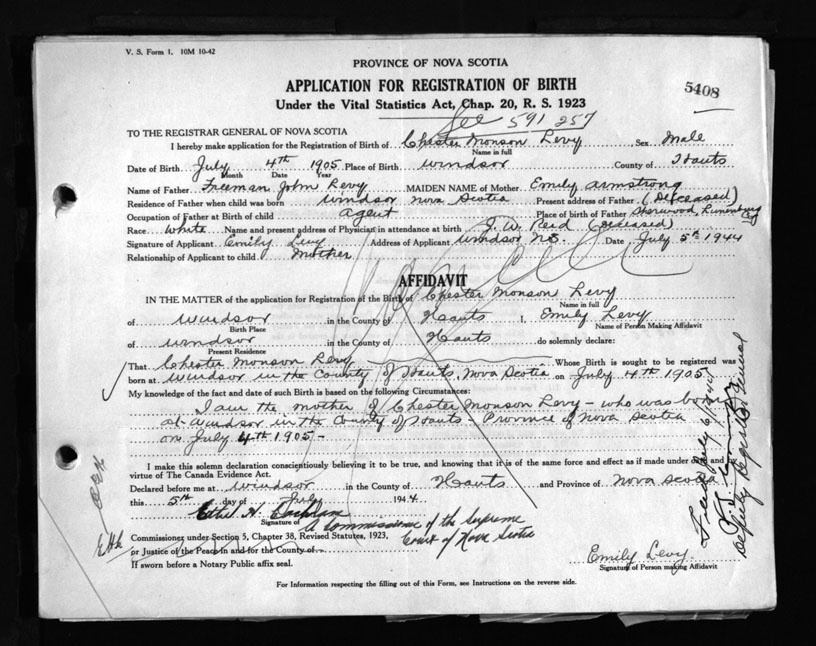 V. S. Form 1. 10M 10-42
PROVINCE OF NOVA SCOTIA
APPLICATION FOR REGISTRATION OF BIRTH
5408
Under the Vital Statistics Act, Chap. 20, R. S. 1923
See 591 257
TO THE REGISTRAR GENERAL OF NOVA SCOTIA
I hereby make application for the Registration of Birth of Chester Monson Levy Sex Male
Name in full
Date of Birth July 4th 1905 Place of Birth Windsor County of Hants
Month Date Year
Name of Father Freeman John Levy MAIDEN NAME of Mother Emily Armstrong
Residence of Father when child was born Windsor Nova Scotia Present address of Father (Deceased)
Occupation of Father at Birth of child agent Place of birth of Father Sherwood, Lunenburg Co
Race White Name and present address of Physician in attendance at birth J. W. Reid (Deceased)
Signature of Applicant Emily Levy Address of Applicant Windsor N.S. Date July 5th 1944
Relationship of Applicant to child Mother
AFFIDAVIT
IN THE MATTER of the application for Registration of the Birth of Chester Monson Levy
Name in full
of Windsor in the County of Hants I, Emily Levy
Birth Place Name of Person Making Affidavit
of Windsor in the County of Hants do solemnly declare:
Present Residence
That Chester Monson Levy Whose Birth is sought to be registered was
born at Windsor in the County of Hants, Nova Scotia on July 4th 1905
My knowledge of the fact and date of such Birth is based on the following Circumstances:
I am the mother of Chester Monson Levy - who was born
at Windsor in the County of Hants - Province of Nova Scotia
on July 4th 1905 -
I make this solemn declaration conscientiously believing it to be true, and knowing that it is of the same force and effect as if made under oath and by
virtue of The Canada Evidence Act.
Declared before me at Windsor in the County of Hants and Province of Nova Scotia
this 5th day of July 1944
Ethel H. Cochran
Signature of
A Commissioner of the Supreme
Court of Nova Scotia
Commissioner under Section 5, Chapter 38, Revised Statutes, 1923,
or Justice of the Peace in and for the County of
If sworn before a Notary Public affix seal.
Emily Levy
Signature of Person making Affidavit
For Information respecting the filling out of this Form, see Instructions on the reverse side.
Deputy Registrar General